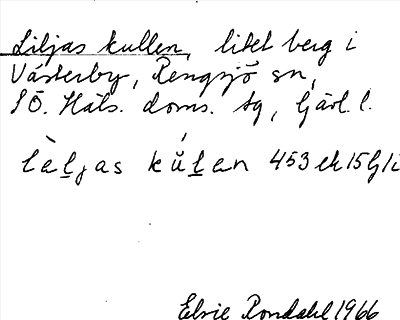 Liljas kullen, litet berg i
Västerby, Rengsjö sn,
SÖ. Häls. doms. tg, Gävl. l.
lèl̲jas kŭl̲en 453 ek 15 G/i
Elsie Rondahl 1966